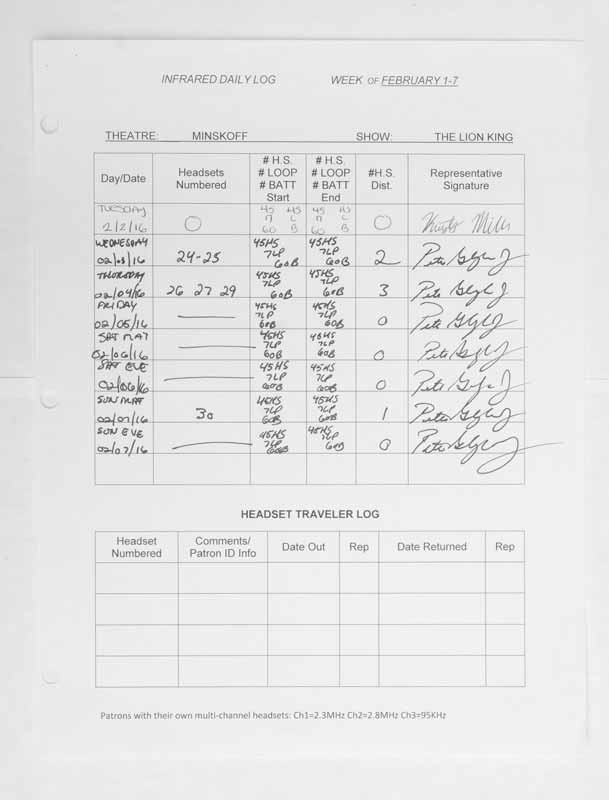 INFRARED DAILY LOG WEEK OF FEBRUARY 1-7
THEATRE: MINSKOFF SHOW: THE LION KING
Day/Date Headsets Numbered # H.S. # LOOP # BATT Start # H.S. # LOOP # BATT End #H.S. Dist. Representative Signature
TUESDAY 2/2/16 0 45 HS 7 L 60 B 45 HS 7 L 60 B 0
WEDNESDAY 02/03/16 24-25 45HS 7LP 60B 45HS 7LP 60B 2 Pete
THURSDAY 02/04/16 26 27 29 45HS 7LP 60B 45HS 7LP 60B 3 Pete
FRIDAY 02/05/16 — 45HS 7LP 60B 45HS 7LP 60B 0 Pete
SAT MAT 02/06/16 — 45HS 7LP 60B 45HS 7LP 60B 0 Pete
SAT EVE 02/06/16 — 45HS 7LP 60B 45HS 7LP 60B 0 Pete
SUN MAT 02/07/16 30 45HS 7LP 60B 45HS 7LP 60B 1 Pete
SUN EVE 02/07/16 — 45HS 7LP 60B 45HS 7LP 60B 0 Pete
HEADSET TRAVELER LOG
Headset Numbered Comments/ Patron ID Info Date Out Rep Date Returned Rep
Patrons with their own multi-channel headsets: Ch1=2.3MHz Ch2=2.8MHz Ch3=95KHz